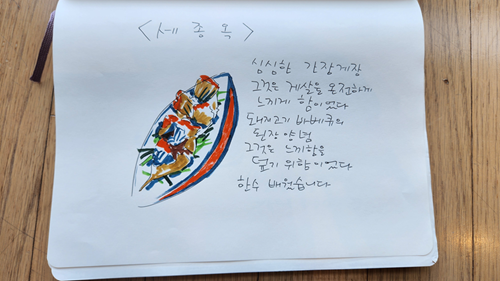 <세종옥>
심심한 간장게장
그것은 게살을 온전하게
느끼게 함이었다
돼지고기 바베큐의
된장 양념
그것은 느끼함을
덮기 위함이었다
한수 배웠습니다